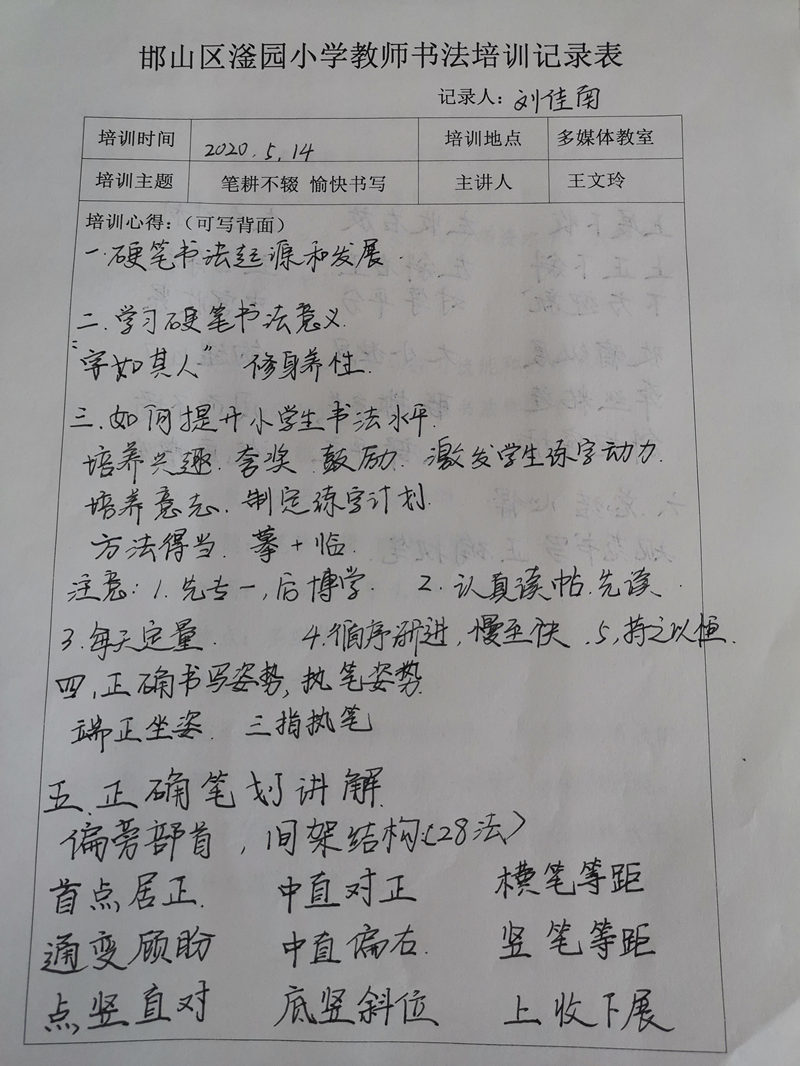 邯山区滏园小学教师书法培训记录表
记录人：刘佳南
培训时间 2020.5.14 培训地点 多媒体教室
培训主题 笔耕不辍 愉快书写 主讲人 王文玲
培训心得：（可写背面）
一.硬笔书法起源和发展.
二.学习硬笔书法意义.
“字如其人” 修身养性.
三.如何提升小学生书法水平.
培养兴趣.夸奖.鼓励.激发学生练字动力.
培养意志.制定练字计划.
方法得当.摹+临.
注意：1.先专一,后博学. 2.认真读帖.先读.
3.每天定量. 4.循序渐进,慢至快.5,持之以恒.
四,正确书写姿势,执笔姿势.
端正坐姿. 三指执笔
五.正确笔划讲解.
偏旁部首,间架结构:(28法)
首点居正. 中直对正 横笔等距
通变顾盼 中直偏右. 竖笔等距
点竖直对 底竖斜位 上收下展